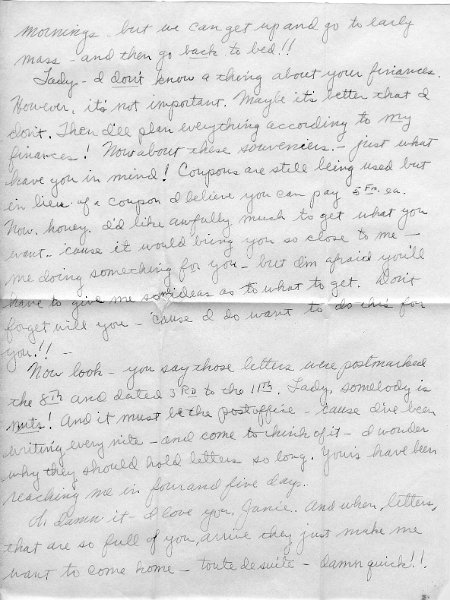 mornings - but we can get up and go to early
mass - and then go back to bed!!
Lady - I don't know a thing about your finances.
However, it's not important. Maybe it's better that I
don't. Then I'll plan everything according to my
finances! Now about these souveniers. - just what
have you in mind! Coupons are still being used but
in lieu of a coupon I believe you can pay 5 Fr. ea.
Now, honey, I'd like awfully much to get what you
want - 'cause it would bring you so close to me -
me doing something for you - but I'm afraid you'll
have to give me some ideas as to what to get. Don't
forget will you - 'cause I do want to do this for
you!! -
Now look - you say those letters were postmarked
the 8th and dated 3rd to the 11th. Lady, somebody is
nuts! And it must be the postoffice - 'cause I've been
writing every nite - and come to think of it - I wonder
why they should hold letters so long. Yours have been
reaching me in four and five days.
Oh Damn it I love you, Janie. And when letters,
that are so full of you, arrive they just make me
want to come home - toute de suite - damn quick!!